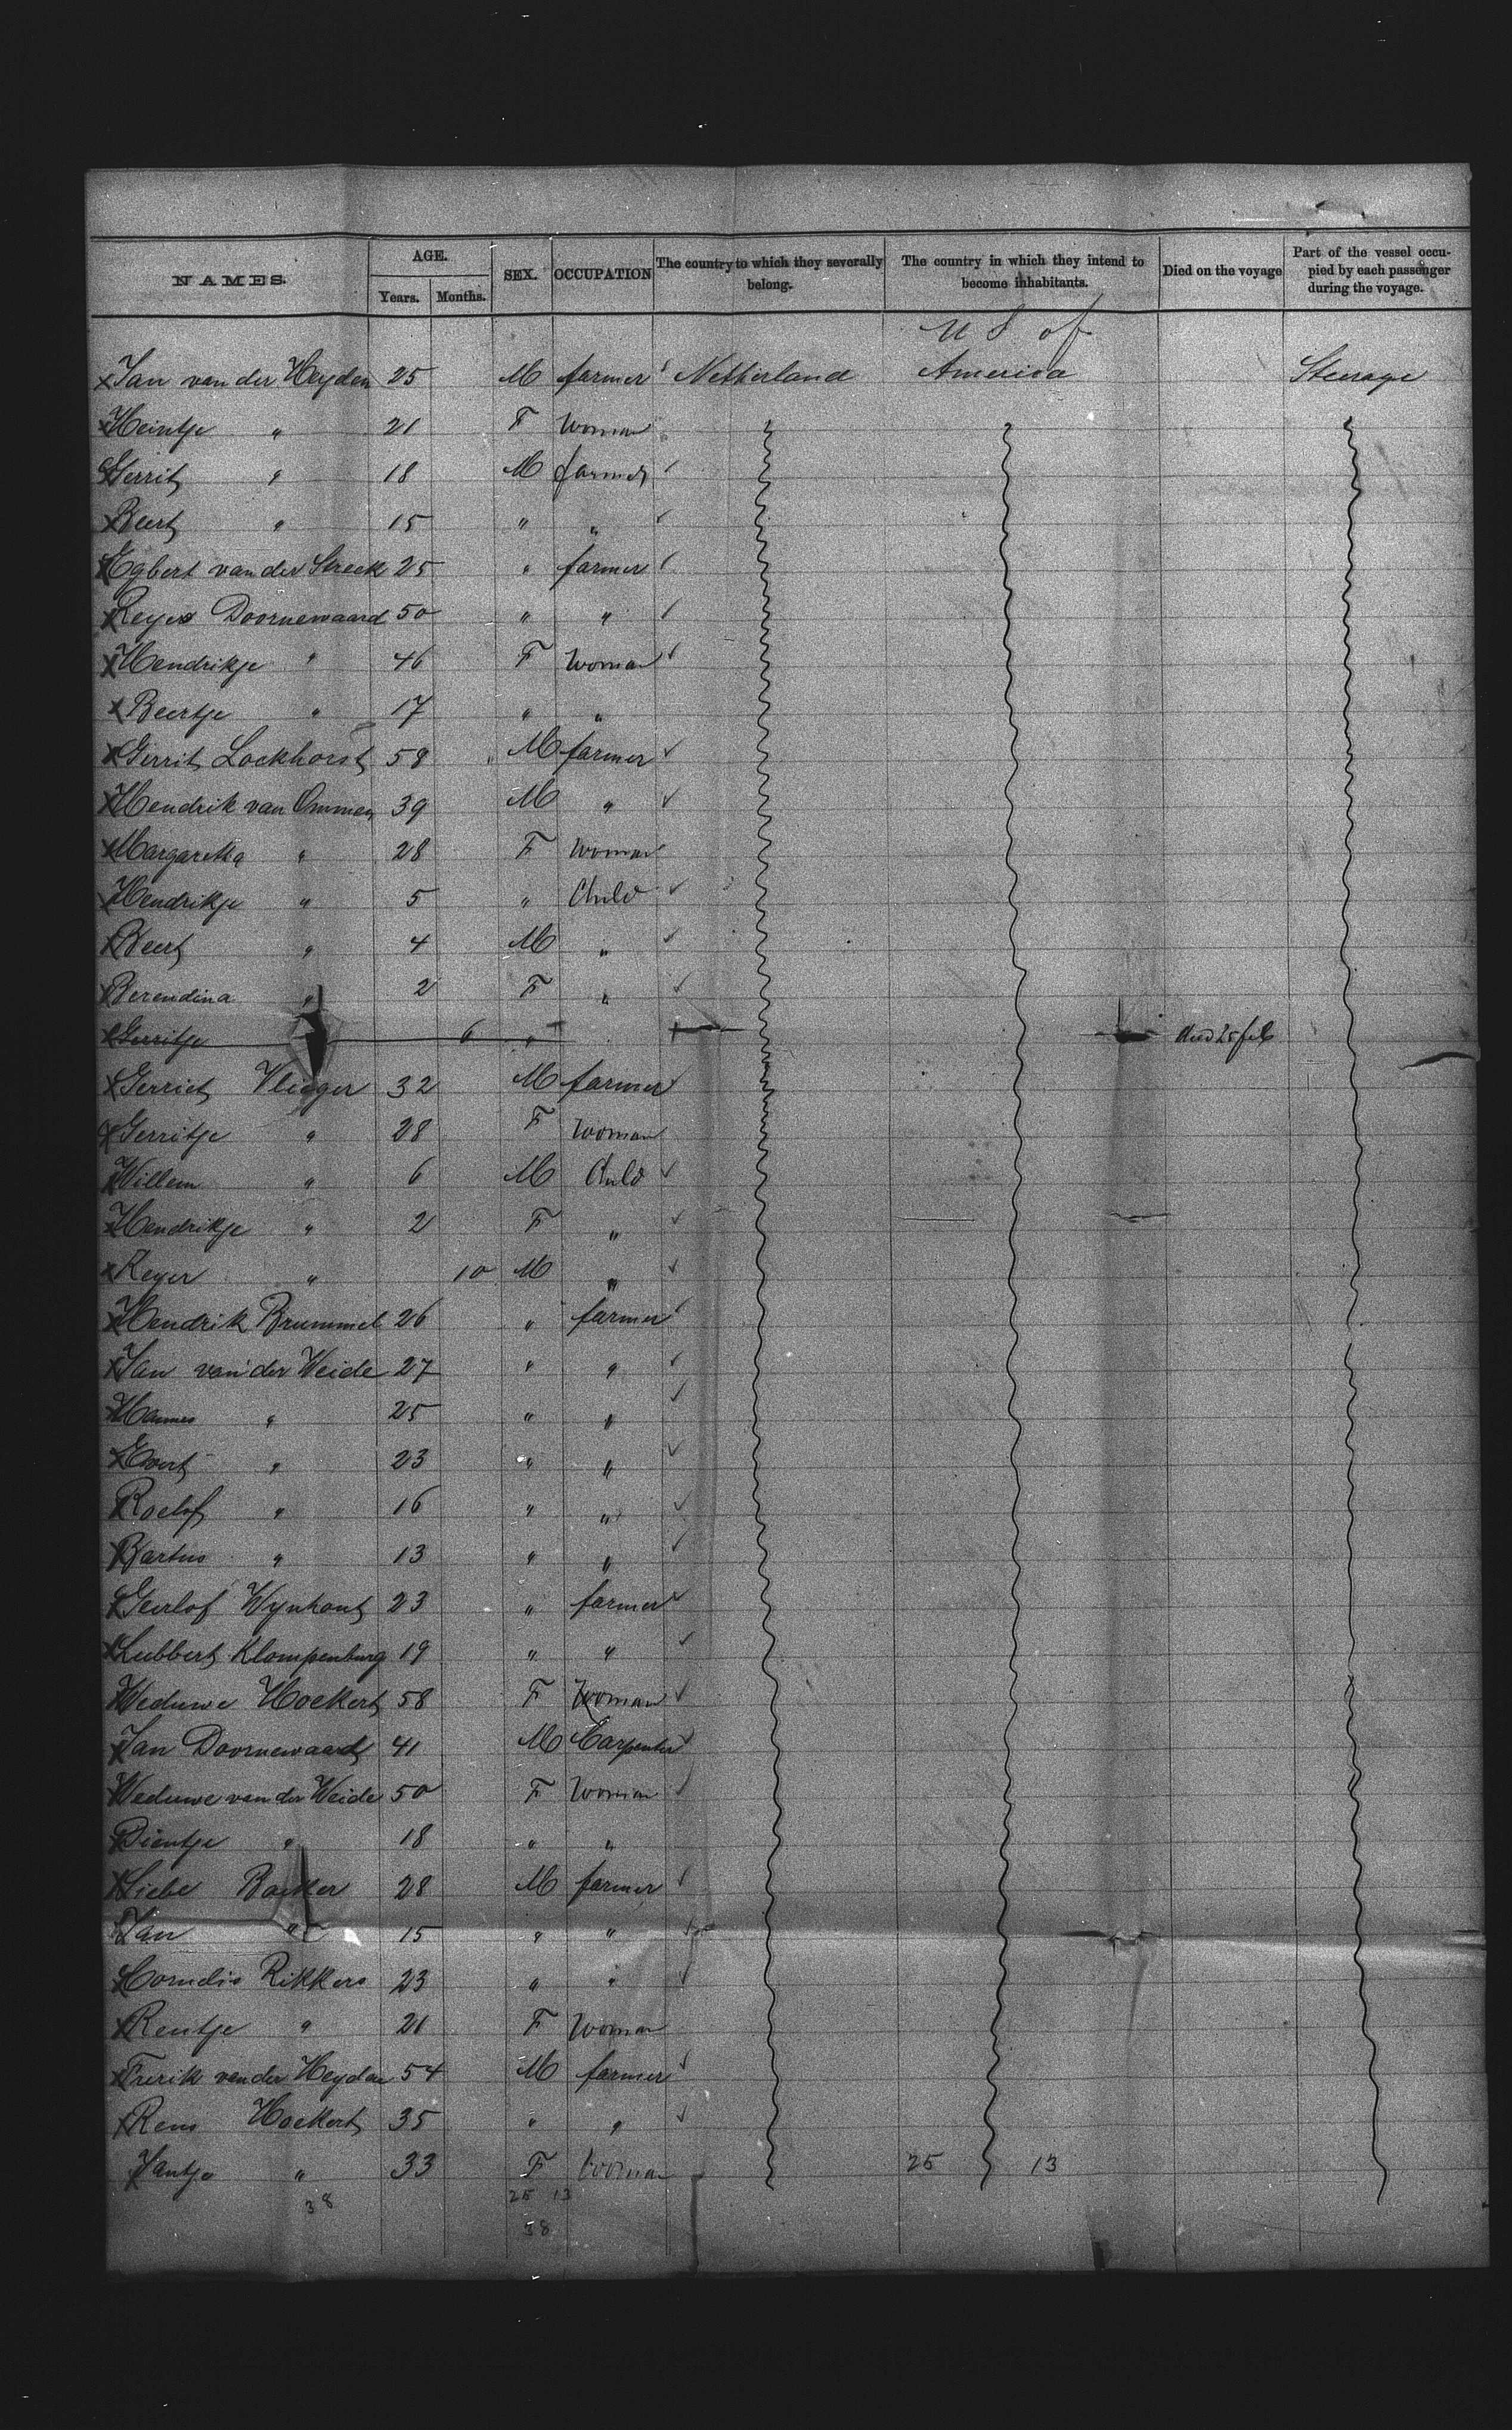 NAMES. AGE. Years. Months. SEX. OCCUPATION The country to which they severally belong. The country in which they intend to become inhabitants. Died on the voyage Part of the vessel occupied by each passenger during the voyage.
U S of
Jan van der Heyden 25 M farmer Netherland America Steerage
Heintje " 21 F Woman
Gerrit " 18 M farmer
Beert " 15 " "
Egbert van der Streek 25 " farmer
Reyer Doornewaard 50 " "
Hendrikje " 46 F Woman
Beertje " 17 " "
Gerrit Lockhorst 58 M farmer
Hendrik van Ommen 39 M "
Margaretha " 28 F Woman
Hendrikje " 5 " Child
Beert " 4 M "
Berendina " 2 F "
Gerritje 6 " died 25 feb
Gerriet Vlieger 32 M farmer
Gerritje " 28 F Woman
Willem " 6 M Child
Hendrikje " 2 F "
Reyer " 10 M "
Hendrik Brummel 26 " farmer
Jan van der Weide 27 " "
Hannes " 25 " "
Evert " 23 " "
Roelof " 16 " "
Bartus " 13 " "
Geerlof Wynhout 23 " farmer
Lubbert Klompenburg 19 " "
Weduwe Hoekert 58 F Woman
Jan Doornewaard 41 M Carpenter
Weduwe van der Weide 50 F Woman
Dientje " 18 " "
Siebe Bakker 28 M farmer
Jan " 15 " "
Cornelis Rikkers 23 " "
Rentje " 21 F Woman
Frerik van der Heyden 54 M farmer
Rens Hoekert 35 " "
Jantje " 33 F Woman 25 13
38 25 13
38